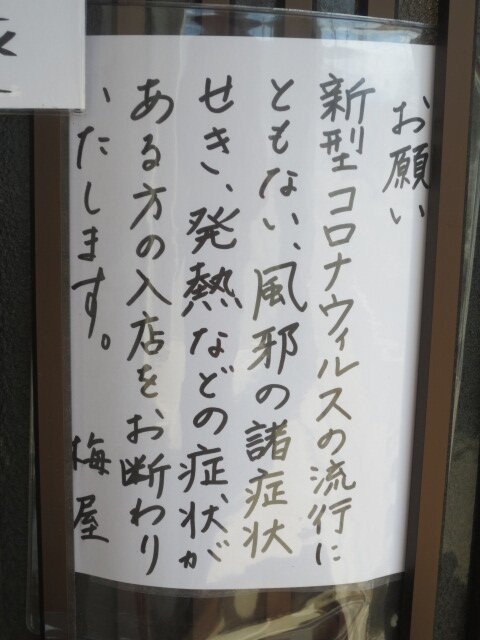 お願い
新型コロナウィルスの流行に
ともない、風邪の諸症状
せき、発熱などの症状が
ある方の入店をお断わり
いたします。 梅屋